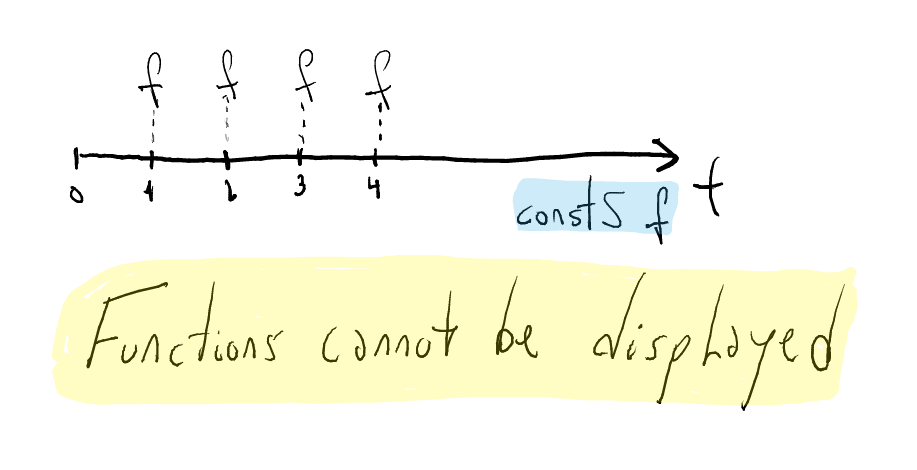 f f f f
0 1 2 3 4
t
constS f
Functions cannot be displayed